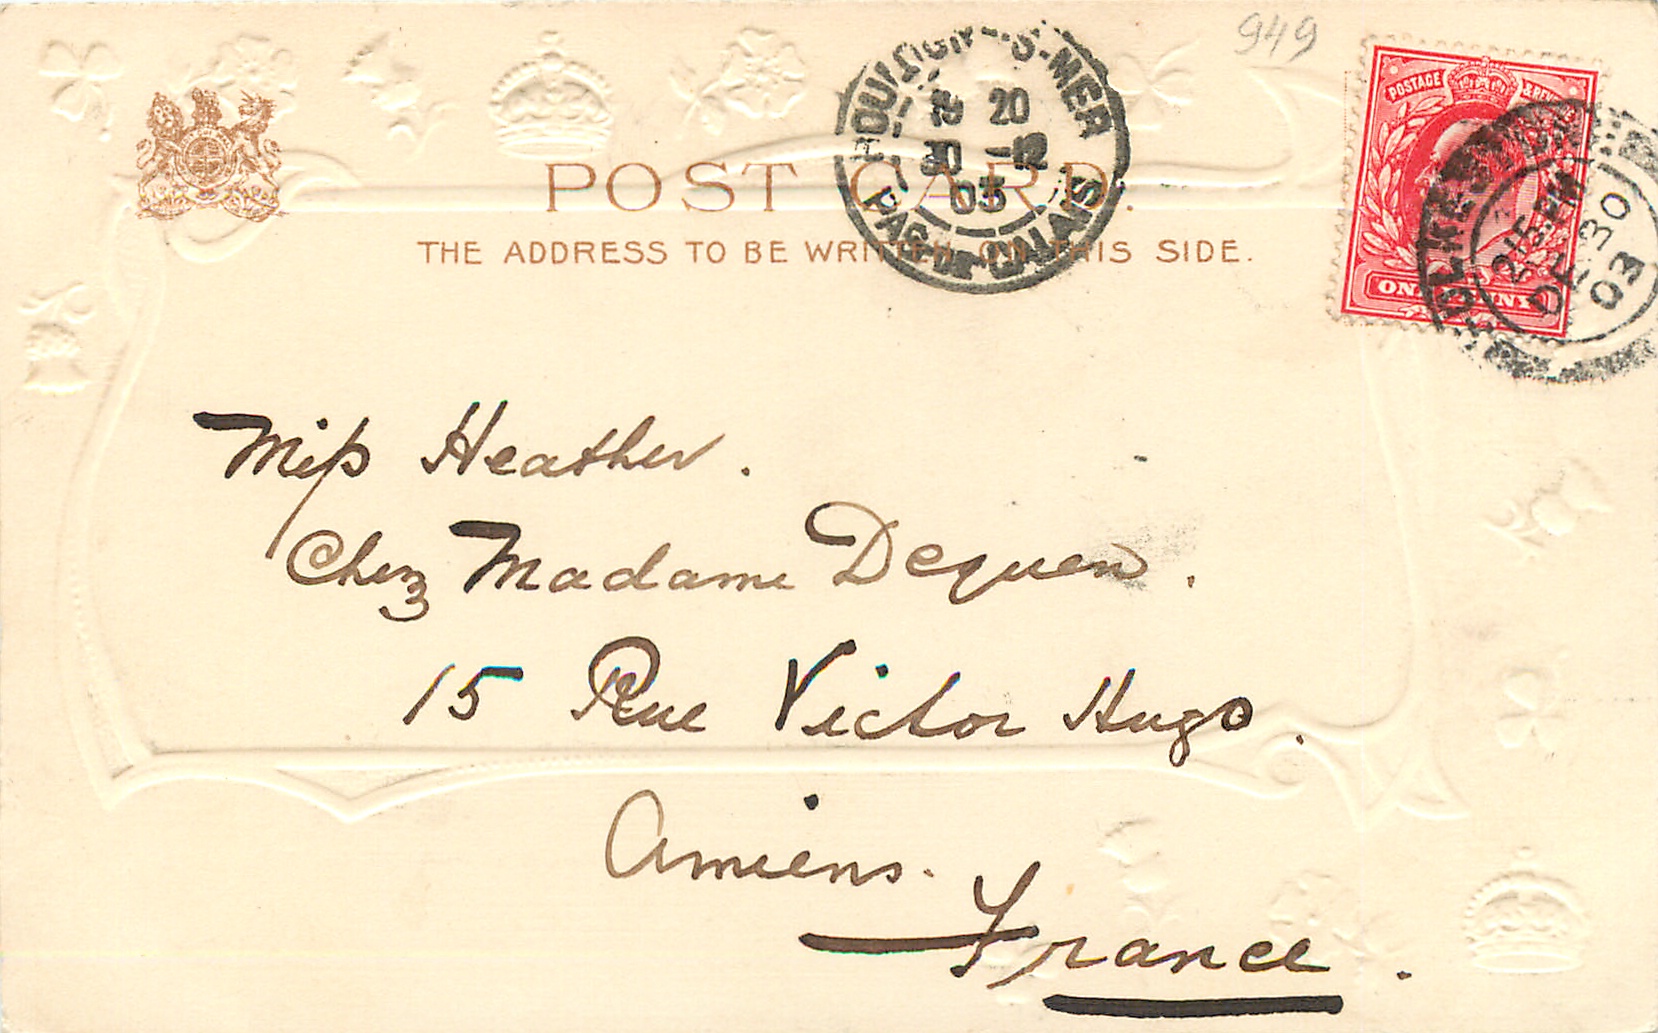 949
POST CARD.
THE ADDRESS TO BE WRITTEN ON THIS SIDE.
BOULOGNE-S-MER
20
30 -12
03
PAS-DE-CALAIS
POSTAGE & REVENUE
ONE PENNY
FOLKESTONE
2 15 PM
DE 30
03
Miss Heather.
Chez Madame Dequen.
15 Rue Victor Hugo.
Amiens.
France.